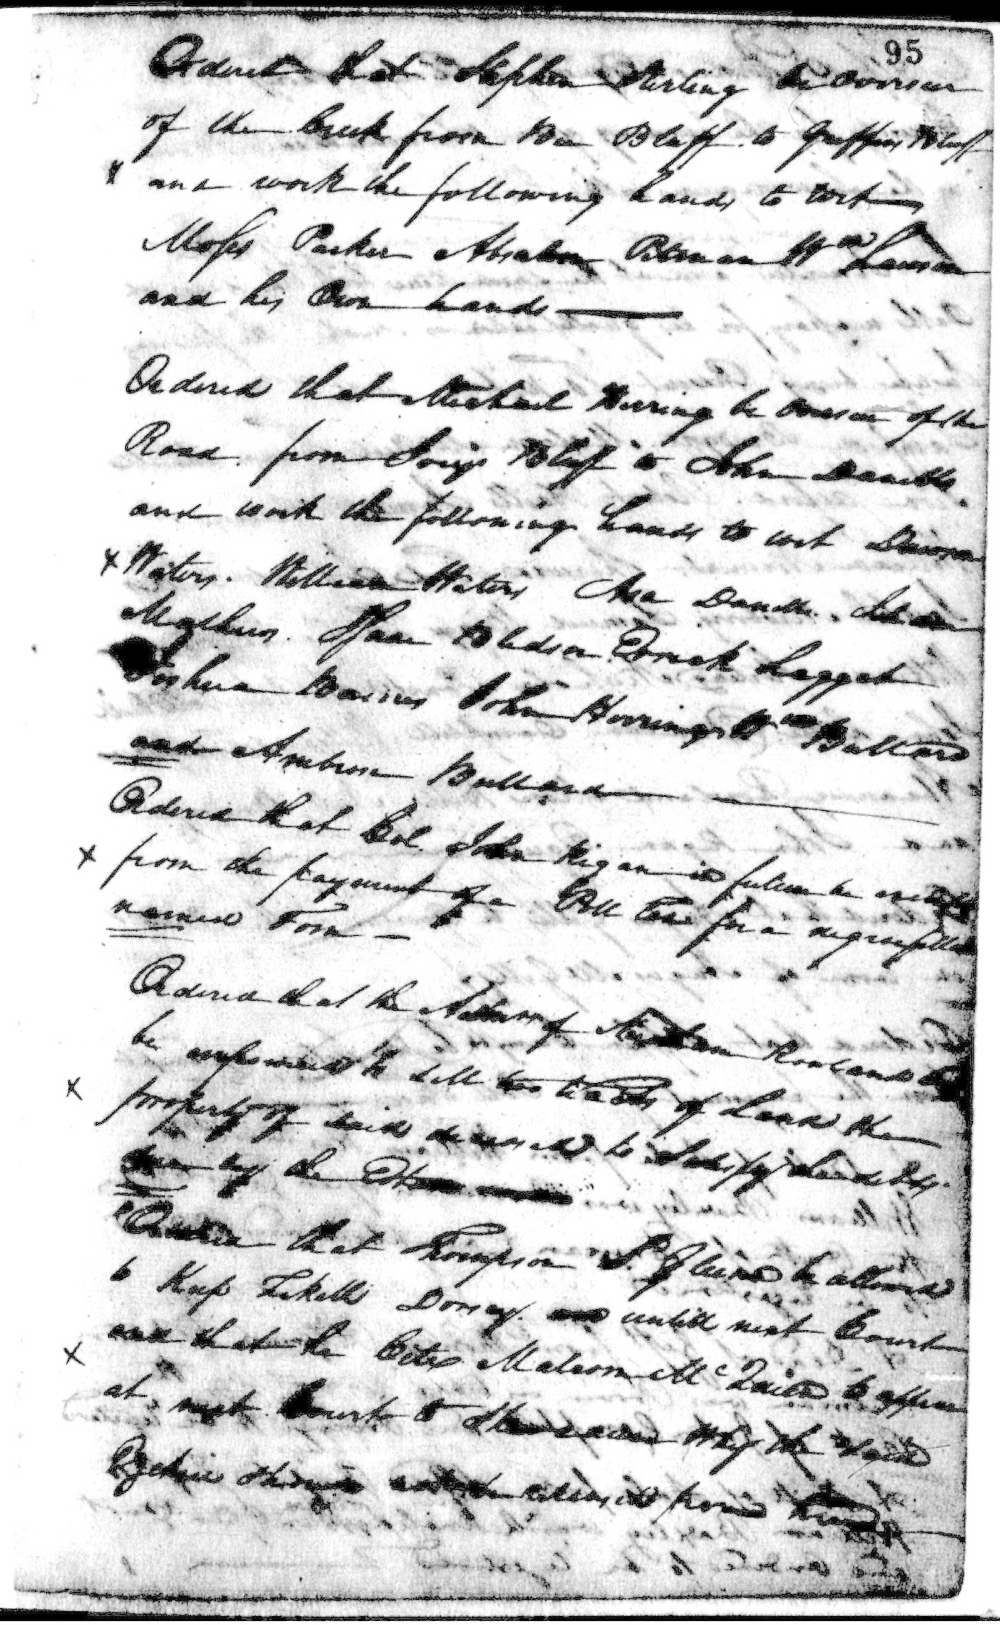 95
Ordered that Stephen Sterling be Overseer
of the Creek from Bee Bluff to Griffins Bluff
x and work the following hands to wit
Moses Parker Absalom Pitman Wm Lawson
and his Own hands
Ordered that Michael Herring be Overseer of the
Road from Bluff to John Daniels
and work the following hands to wit Dawson
x Waters. William Waters Asa Daniels.
Mathews. Isaac Bledsoe Leggett
Joshua Barnes John Herring Wm Bullard
and Ambrose Bullard
Ordered that Col John Regan in future be
x from the payment of a Poll Tax for a negro fellow
named Tom
Ordered that the of Rowland
be empowered to sell two tracts of Land the
x property of said deceased to Satisfy the debts
due by the
Ordered that Thompson be allowed
to Keep Dorsey untill next Court
and that he Cites Malcom Mc to appear
x at next Court to Shew cause Why the said
Should not be released from him